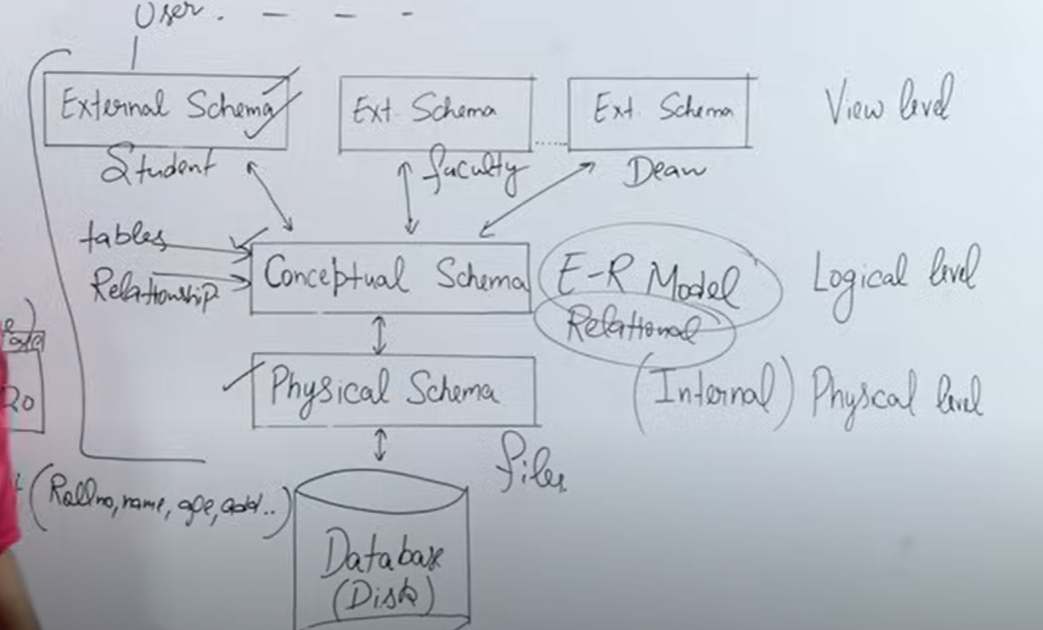 User. - - -
External Schema
Ext. Schema
Ext. Schema
View level
Student
faculty
Dean
tables
Relationship
Conceptual Schema
E-R Model
Relational
Logical level
Physical Schema
(Internal) Physcal level
20
files
(Rollno, name, age, add..)
Database
(Disk)